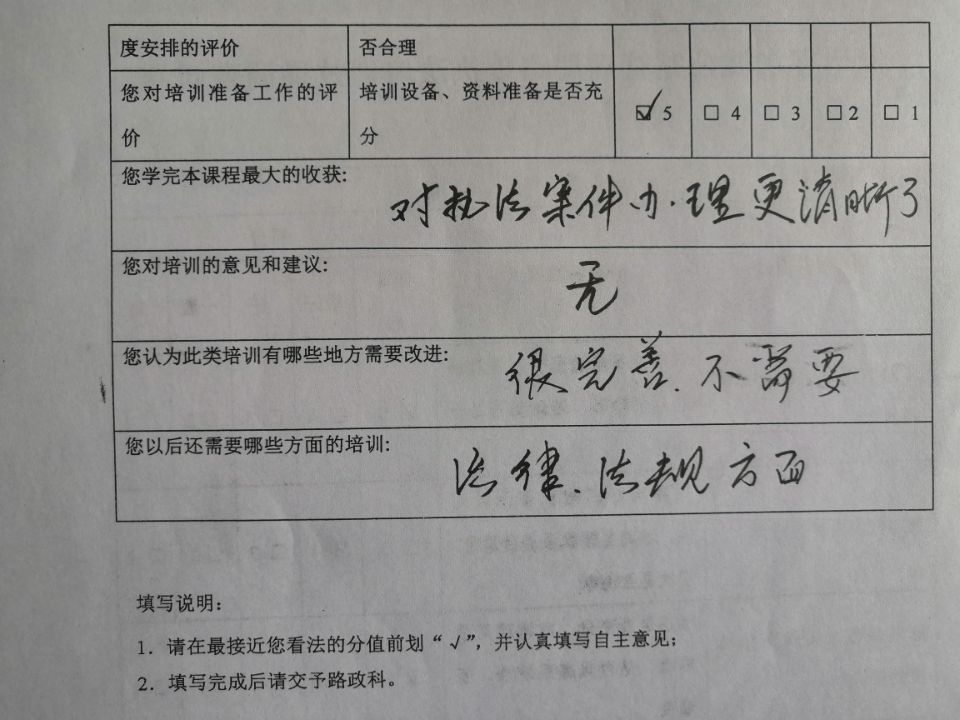 度安排的评价 否合理
您对培训准备工作的评 培训设备、资料准备是否充
价 分 ☑ 5 □ 4 □ 3 □ 2 □ 1
您学完本课程最大的收获:
对执法案件办理更清晰了
您对培训的意见和建议:
无
您认为此类培训有哪些地方需要改进:
很完善、不需要
您以后还需要哪些方面的培训:
法律、法规方面
填写说明:
1. 请在最接近您看法的分值前划“√”,并认真填写自主意见;
2. 填写完成后请交予路政科。